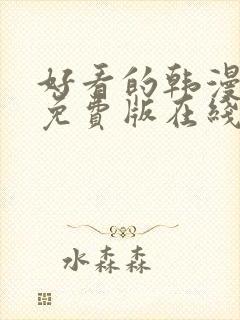 好看的韩漫
免費版在綫
水森森